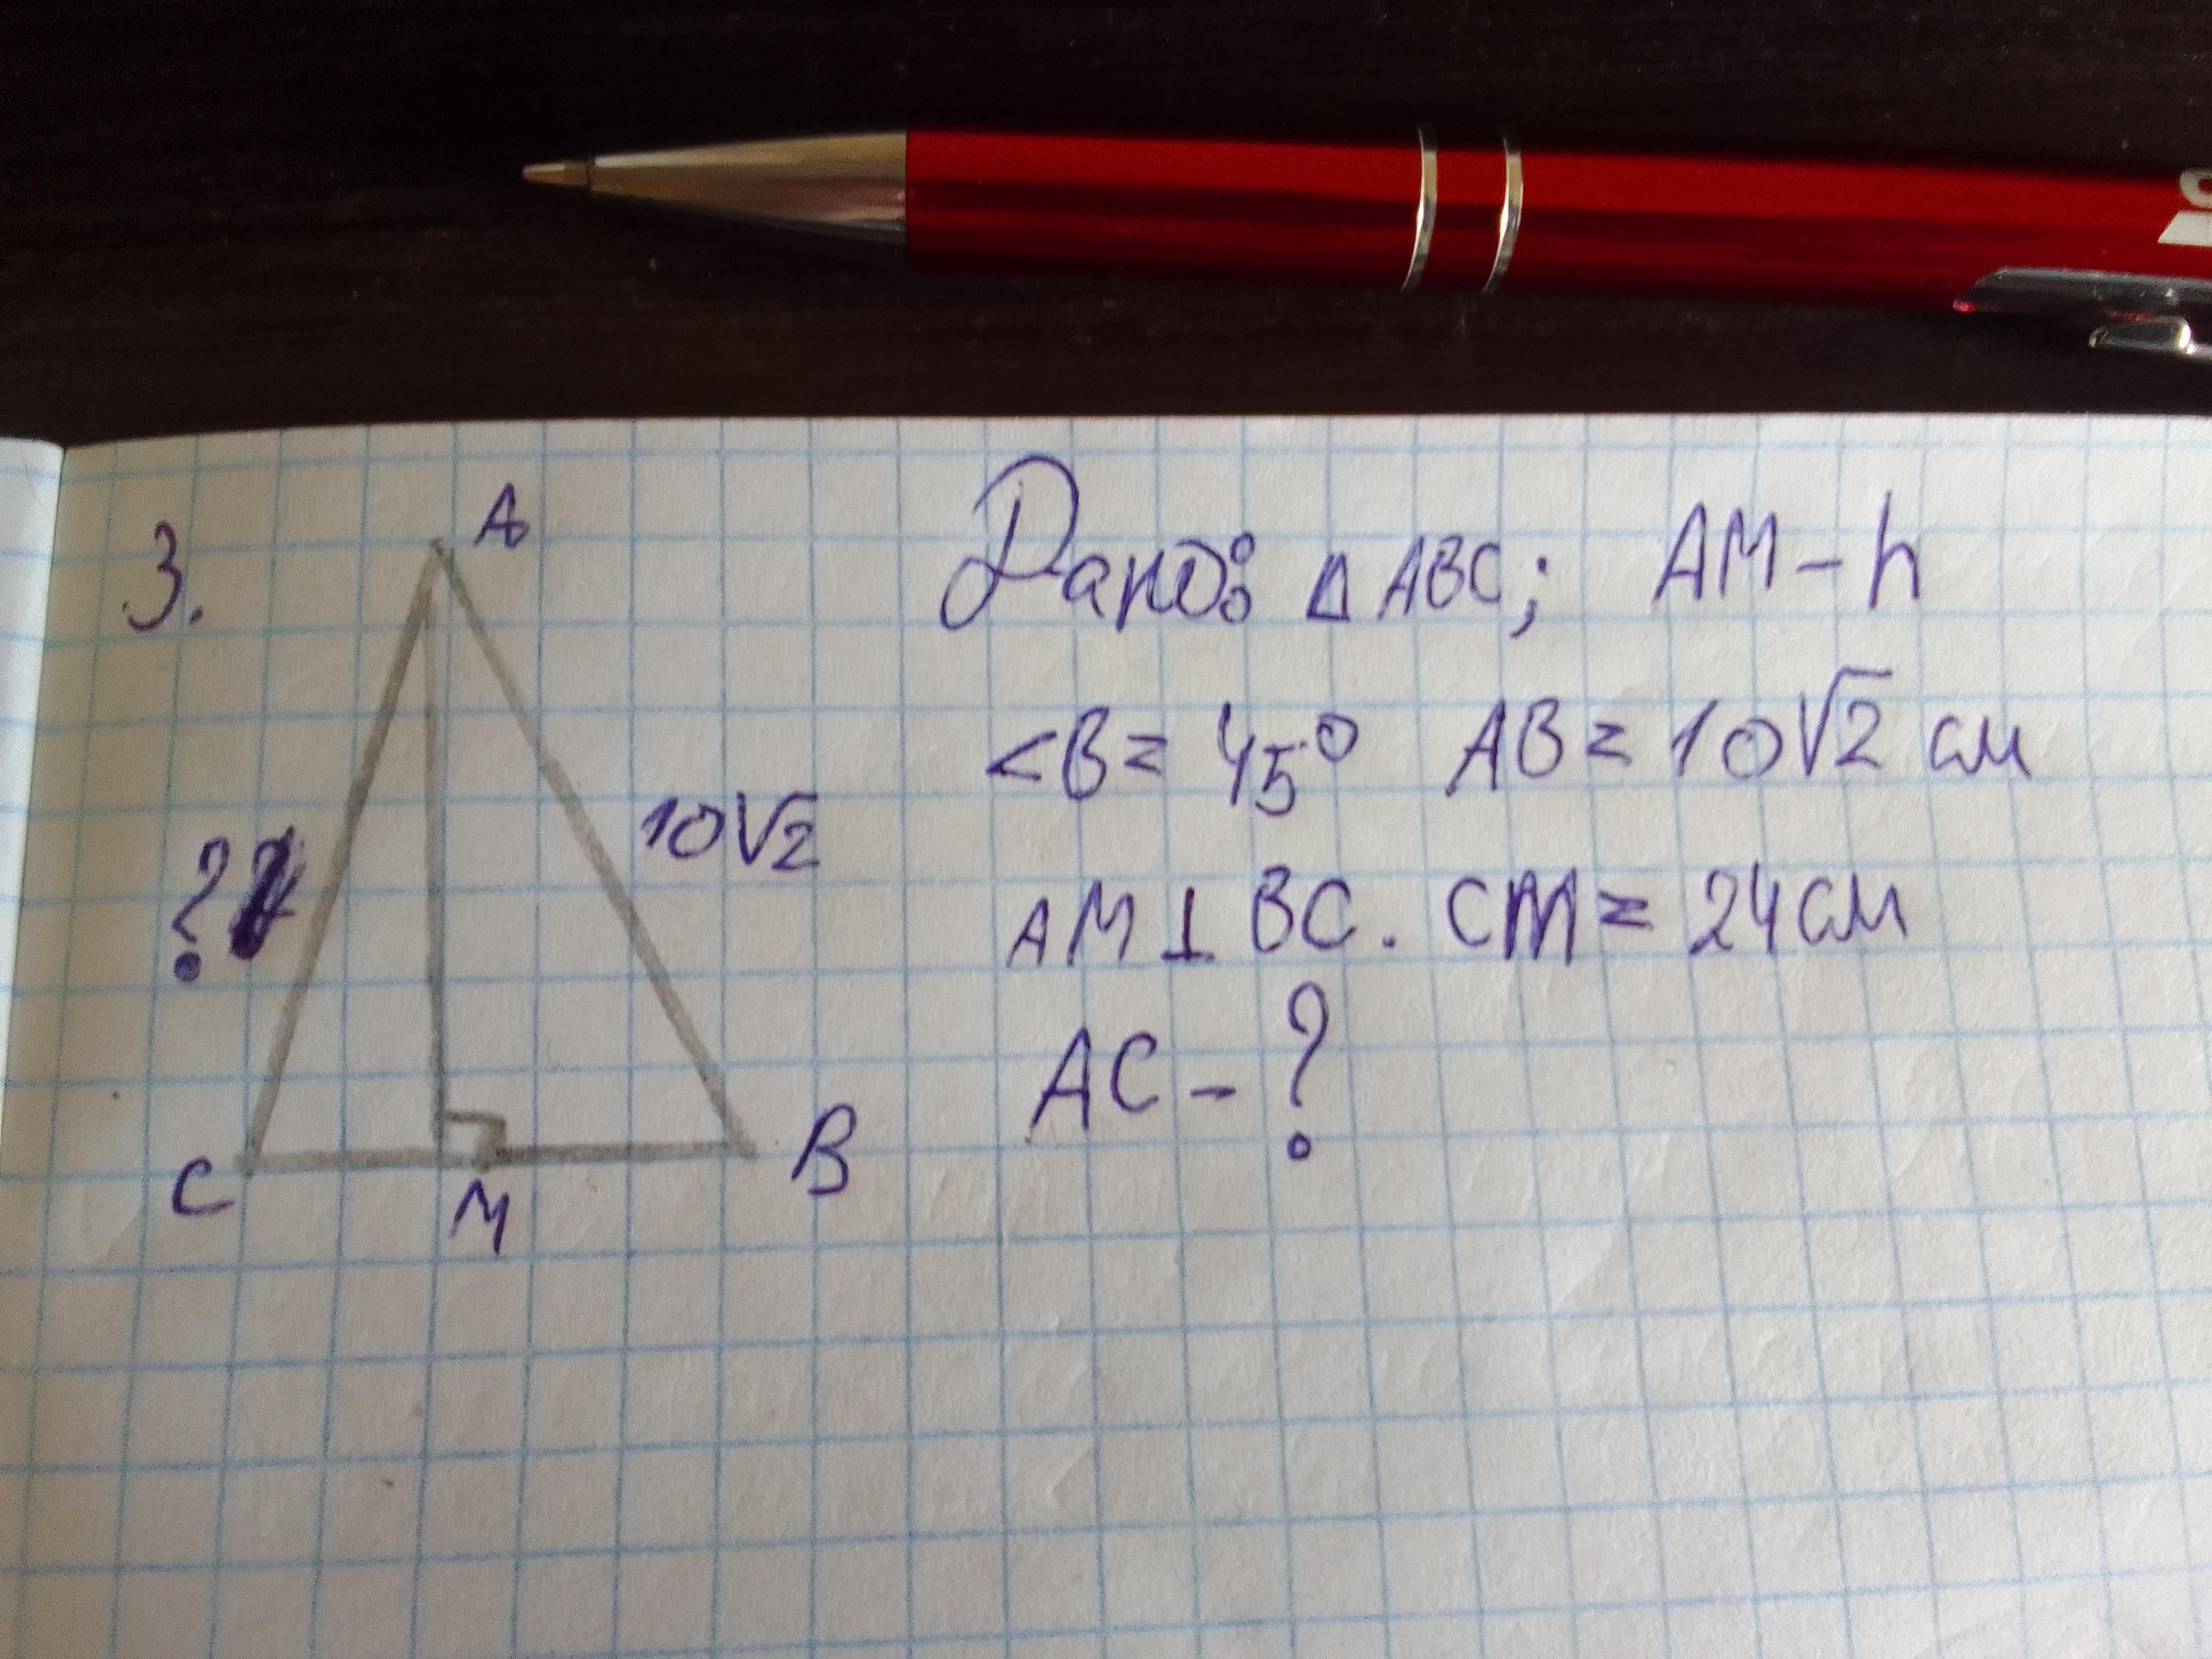 3.
A
Дано: △ ABC; AM – h
10√2
<B = 45° AB = 10√2 см
?
AM ⊥ BC. CM = 24 см
AC – ?
C
M
B